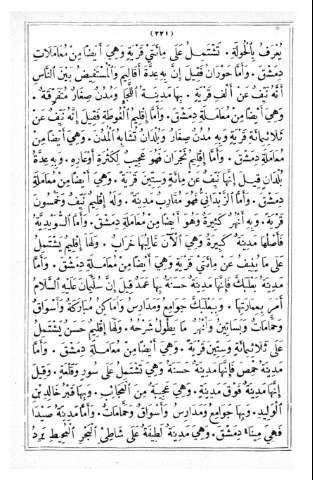 (٣٣١)
يُعْرَفُ بِالْحُولَةِ . تَشْتَمِلُ عَلَى مِائَتَيْ قَرْيَةٍ وَهِيَ أَيْضًا مِنْ مُعَامَلَاتِ
دِمَشْقَ . وَأَمَّا حَوْرَانُ فَقِيلَ إِنَّ بِهِ عِدَّةَ أَقَالِيمَ وَالْمُسْتَفِيضُ بَيْنَ النَّاسِ
أَنَّهُ نَيَّفَ عَنْ أَلْفِ قَرْيَةٍ . بِهَا مَدِينَةُ وَمُدُنٌ صِغَارٌ مُتَفَرِّقَةٌ .
وَهِيَ أَيْضًا مِنْ مُعَامَلَةِ دِمَشْقَ . وَأَمَّا إِقْلِيمُ الْغُوطَةِ فَقِيلَ إِنَّهُ نَيَّفَ عَنْ
ثَلَاثِمِائَةِ قَرْيَةٍ وَبِهِ مُدُنٌ صِغَارٌ وَبُلْدَانٌ تُشَابِهُ الْمُدُنَ . وَهِيَ أَيْضًا مِنْ
مُعَامَلَةِ دِمَشْقَ . وَأَمَّا إِقْلِيمُ فَهُوَ عَجِيبٌ لِكَثْرَةِ أَوْعَارِهِ . وَبِهِ عِدَّةُ
بُلْدَانٍ قِيلَ إِنَّهَا نَيَّفَ عَنْ مِائَةٍ وَسِتِّينَ قَرْيَةً . وَهِيَ أَيْضًا مِنْ مُعَامَلَةِ
دِمَشْقَ . وَأَمَّا الزَّبَدَانِي فَهُوَ مُقَارِبُ مَدِينَةٍ . وَلَهُ إِقْلِيمٌ نَيَّفَ وَخَمْسُونَ
قَرْيَةً . وَبِهِ أَنْهُرٌ كَثِيرَةٌ وَهُوَ أَيْضًا مِنْ مُعَامَلَةِ دِمَشْقَ . وَأَمَّا
فَأَصْلُهَا مَدِينَةٌ كَبِيرَةٌ وَهِيَ الْآنَ غَالِبُهَا خَرَابٌ . وَلَهَا إِقْلِيمٌ يَشْتَمِلُ
عَلَى مَا يُنِيفُ عَنْ مِائَتَيْ قَرْيَةٍ وَهِيَ أَيْضًا مِنْ مُعَامَلَةِ دِمَشْقَ . وَأَمَّا
مَدِينَةُ بَعْلَبَكَّ فَإِنَّهَا مَدِينَةٌ حَسَنَةٌ بِهَا عَمَدٌ قِيلَ إِنَّ سُلَيْمَانَ عَلَيْهِ السَّلَامُ
أَمَرَ بِعِمَارَتِهَا . وَبِبَعْلَبَكَّ جَوَامِعُ وَمَدَارِسُ وَأَمَاكِنُ مُبَارَكَةٌ وَأَسْوَاقٌ
وَحَمَّامَاتٌ وَبَسَاتِينُ وَأَنْهُرٌ مَا يَطُولُ شَرْحُهُ . وَلَهَا إِقْلِيمٌ حَسَنٌ يَشْتَمِلُ
عَلَى ثَلَاثِمِائَةٍ وَسِتِّينَ قَرْيَةً . وَهِيَ أَيْضًا مِنْ مُعَامَلَةِ دِمَشْقَ . وَأَمَّا
مَدِينَةُ حِمْصَ فَإِنَّهَا مَدِينَةٌ حَسَنَةٌ وَهِيَ تَشْتَمِلُ عَلَى سُورٍ وَقَلْعَةٍ . وَقِيلَ
إِنَّهَا مَدِينَةٌ فَوْقَ مَدِينَةٍ . وَهِيَ عَجِيبَةٌ مِنَ الْعَجَائِبِ . وَبِهَا قَبْرُ خَالِدِ بْنِ
الْوَلِيدِ . وَبِهَا جَوَامِعُ وَمَدَارِسُ وَأَسْوَاقٌ وَحَمَّامَاتٌ . وَأَمَّا مَدِينَةُ صَيْدَا
فَهِيَ مِينَاءُ دِمَشْقَ . وَهِيَ مَدِينَةٌ لَطِيفَةٌ عَلَى شَاطِئِ الْبَحْرِ الْمُحِيطِ يَرِدُ